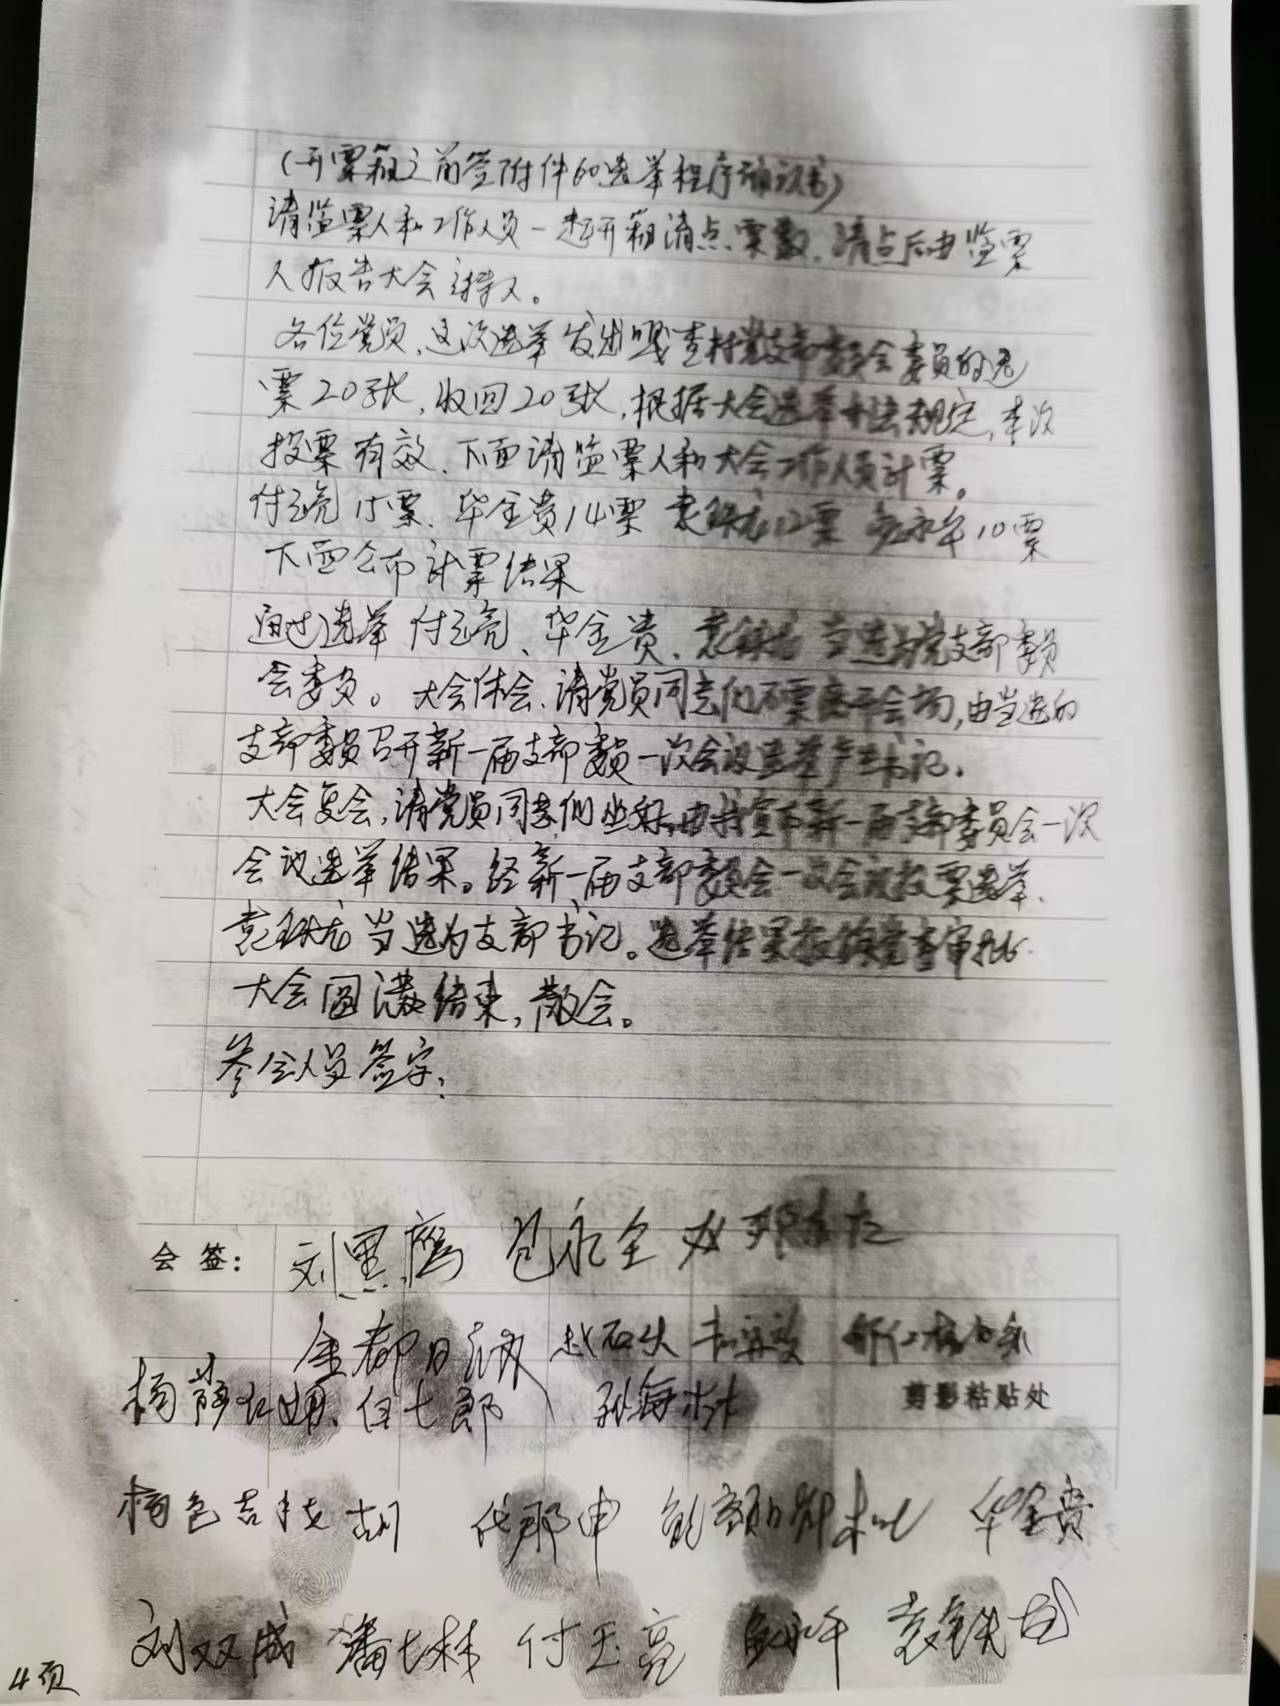 (开票箱之前签附件60选举程序确认书)
请监票人和工作人员一起开箱清点票数,清点后由监票
人报告大会主持人。
各位党员,这次选举发出嘎查村党支部委员会委员的选
票20张,收回20张,根据大会选举办法规定,本次
投票有效,下面请监票人和大会工作人员计票。
付玉亮15票、华金贵14票 袁铁龙12票 包永年10票
下面公布计票结果
通过选举 付玉亮、华金贵、袁铁龙 当选为党支部委员
会委员。大会休会,请党员同志们不要离开会场,由当选的
支部委员召开新一届支部委员一次会议选举产生书记。
大会复会,请党员同志们坐好,由我宣布新一届支部委员会一次
会议选举结果。经新一届支部委员会一次会议投票选举,
袁铁龙当选为支部书记。选举结果报镇党委审批。
大会圆满结束,散会。
参会人员签字:
会 签: 刘黑鹰 包永全
金都日 赵石头
杨 白七郎 孙海林
杨色吉 胡 代那申 华金贵
刘双成 潘七林 付玉亮 包永年 袁铁龙
剪影粘贴处
4页